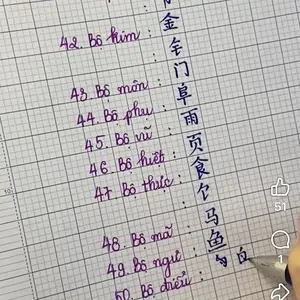 42. Bộ kim : 金
: 钅
43. Bộ môn : 门
44. Bộ phụ : 阜
45. Bộ vũ : 雨
46. Bộ hiệt : 页
47. Bộ thực : 食
: 饣
48. Bộ mã : 马
49. Bộ ngư : 鱼
50. Bộ điểu :
51
1